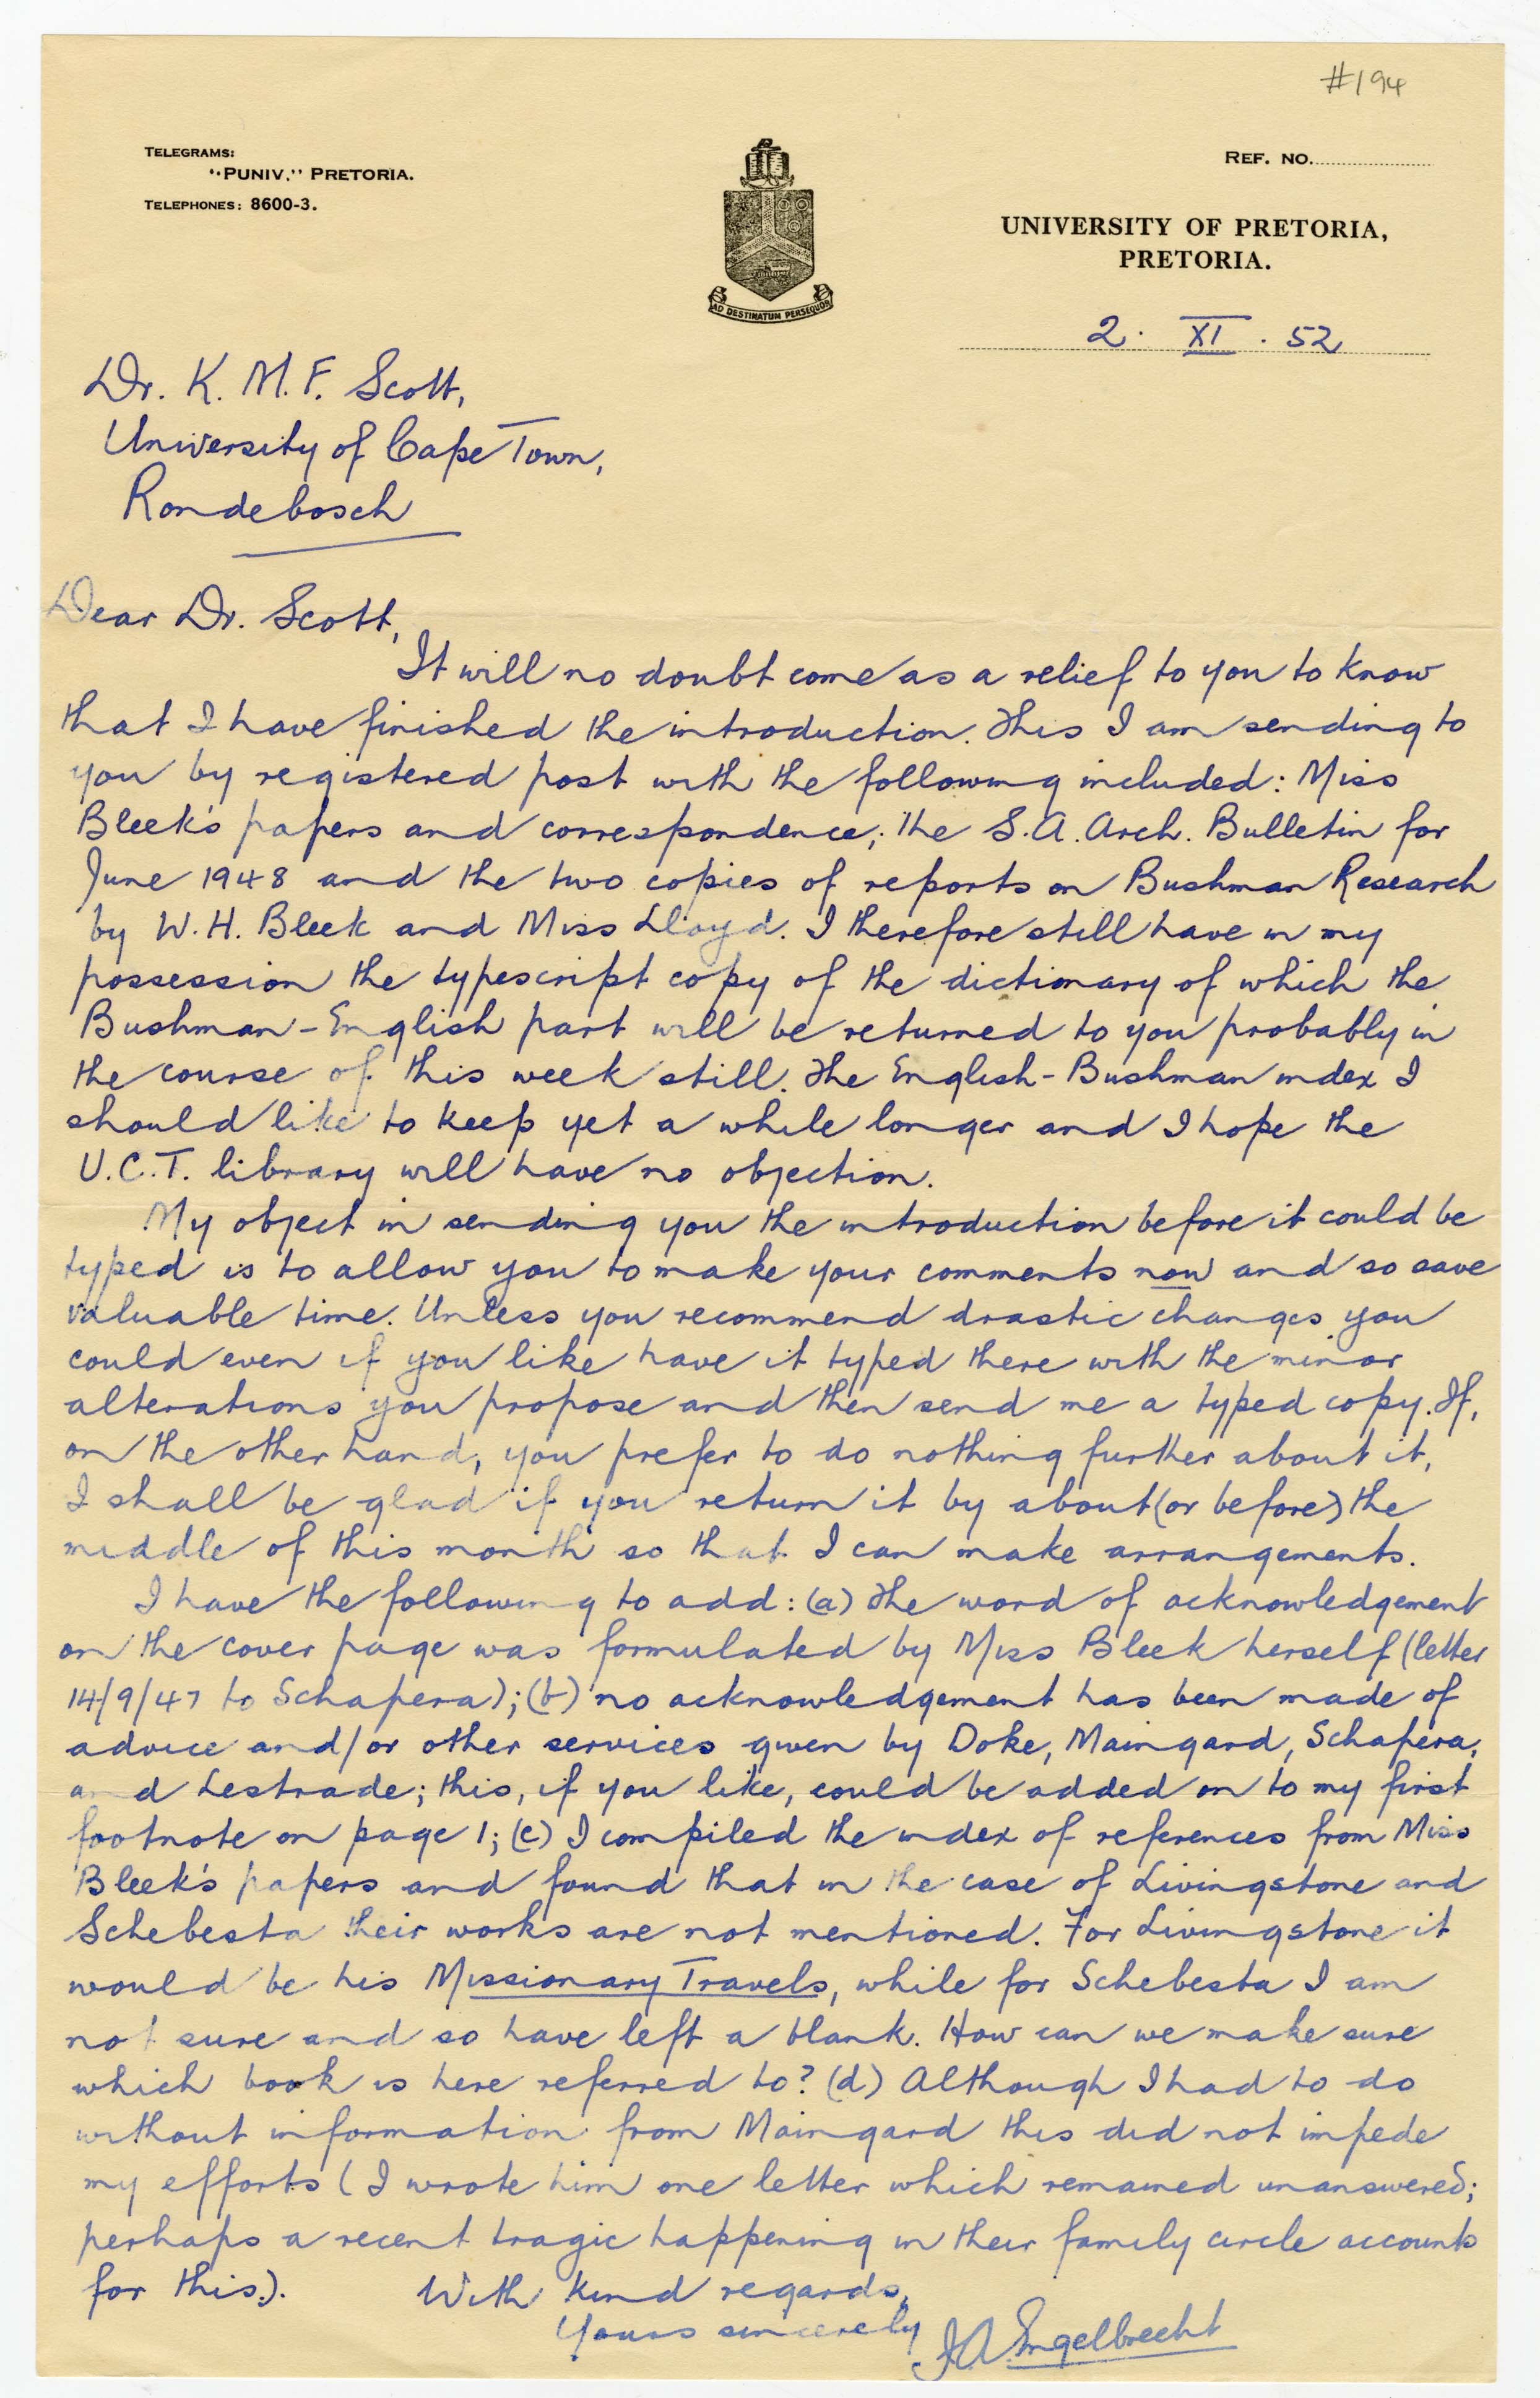 #194
TELEGRAMS:
"PUNIV." PRETORIA.
TELEPHONES: 8600-3.
REF. NO.
UNIVERSITY OF PRETORIA,
PRETORIA.
AD DESTINATUM PERSEQUOR
2. XI. 52
Dr. K. M. F. Scott,
University of Cape Town,
Rondebosch
Dear Dr. Scott,
It will no doubt come as a relief to you to know
that I have finished the introduction. This I am sending to
you by registered post with the following included: Miss
Bleek's papers and correspondence; the S.A. Arch. Bulletin for
June 1948 and the two copies of reports on Bushman Research
by W. H. Bleek and Miss Lloyd. I therefore still have in my
possession the typescript copy of the dictionary of which the
Bushman-English part will be returned to you probably in
the course of this week still. The English-Bushman index I
should like to keep yet a while longer and I hope the
U.C.T. library will have no objection.
My object in sending you the introduction before it could be
typed is to allow you to make your comments now and so save
valuable time. Unless you recommend drastic changes you
could even if you like have it typed there with the minor
alterations you propose and then send me a typed copy. If,
on the other hand, you prefer to do nothing further about it,
I shall be glad if you return it by about (or before) the
middle of this month so that I can make arrangements.
I have the following to add: (a) The word of acknowledgement
on the cover page was formulated by Miss Bleek herself (letter
14/9/47 to Schapera); (b) no acknowledgement has been made of
advice and/or other services given by Doke, Maingard, Schapera,
and Lestrade; this, if you like, could be added on to my first
footnote on page 1; (c) I compiled the index of references from Miss
Bleek's papers and found that in the case of Livingstone and
Schebesta their works are not mentioned. For Livingstone it
would be his Missionary Travels, while for Schebesta I am
not sure and so have left a blank. How can we make sure
which book is here referred to? (d) Although I had to do
without information from Maingard this did not impede
my efforts (I wrote him one letter which remained unanswered;
perhaps a recent tragic happening in their family circle accounts
for this.).
With kind regards,
Yours sincerely
J A Engelbrecht